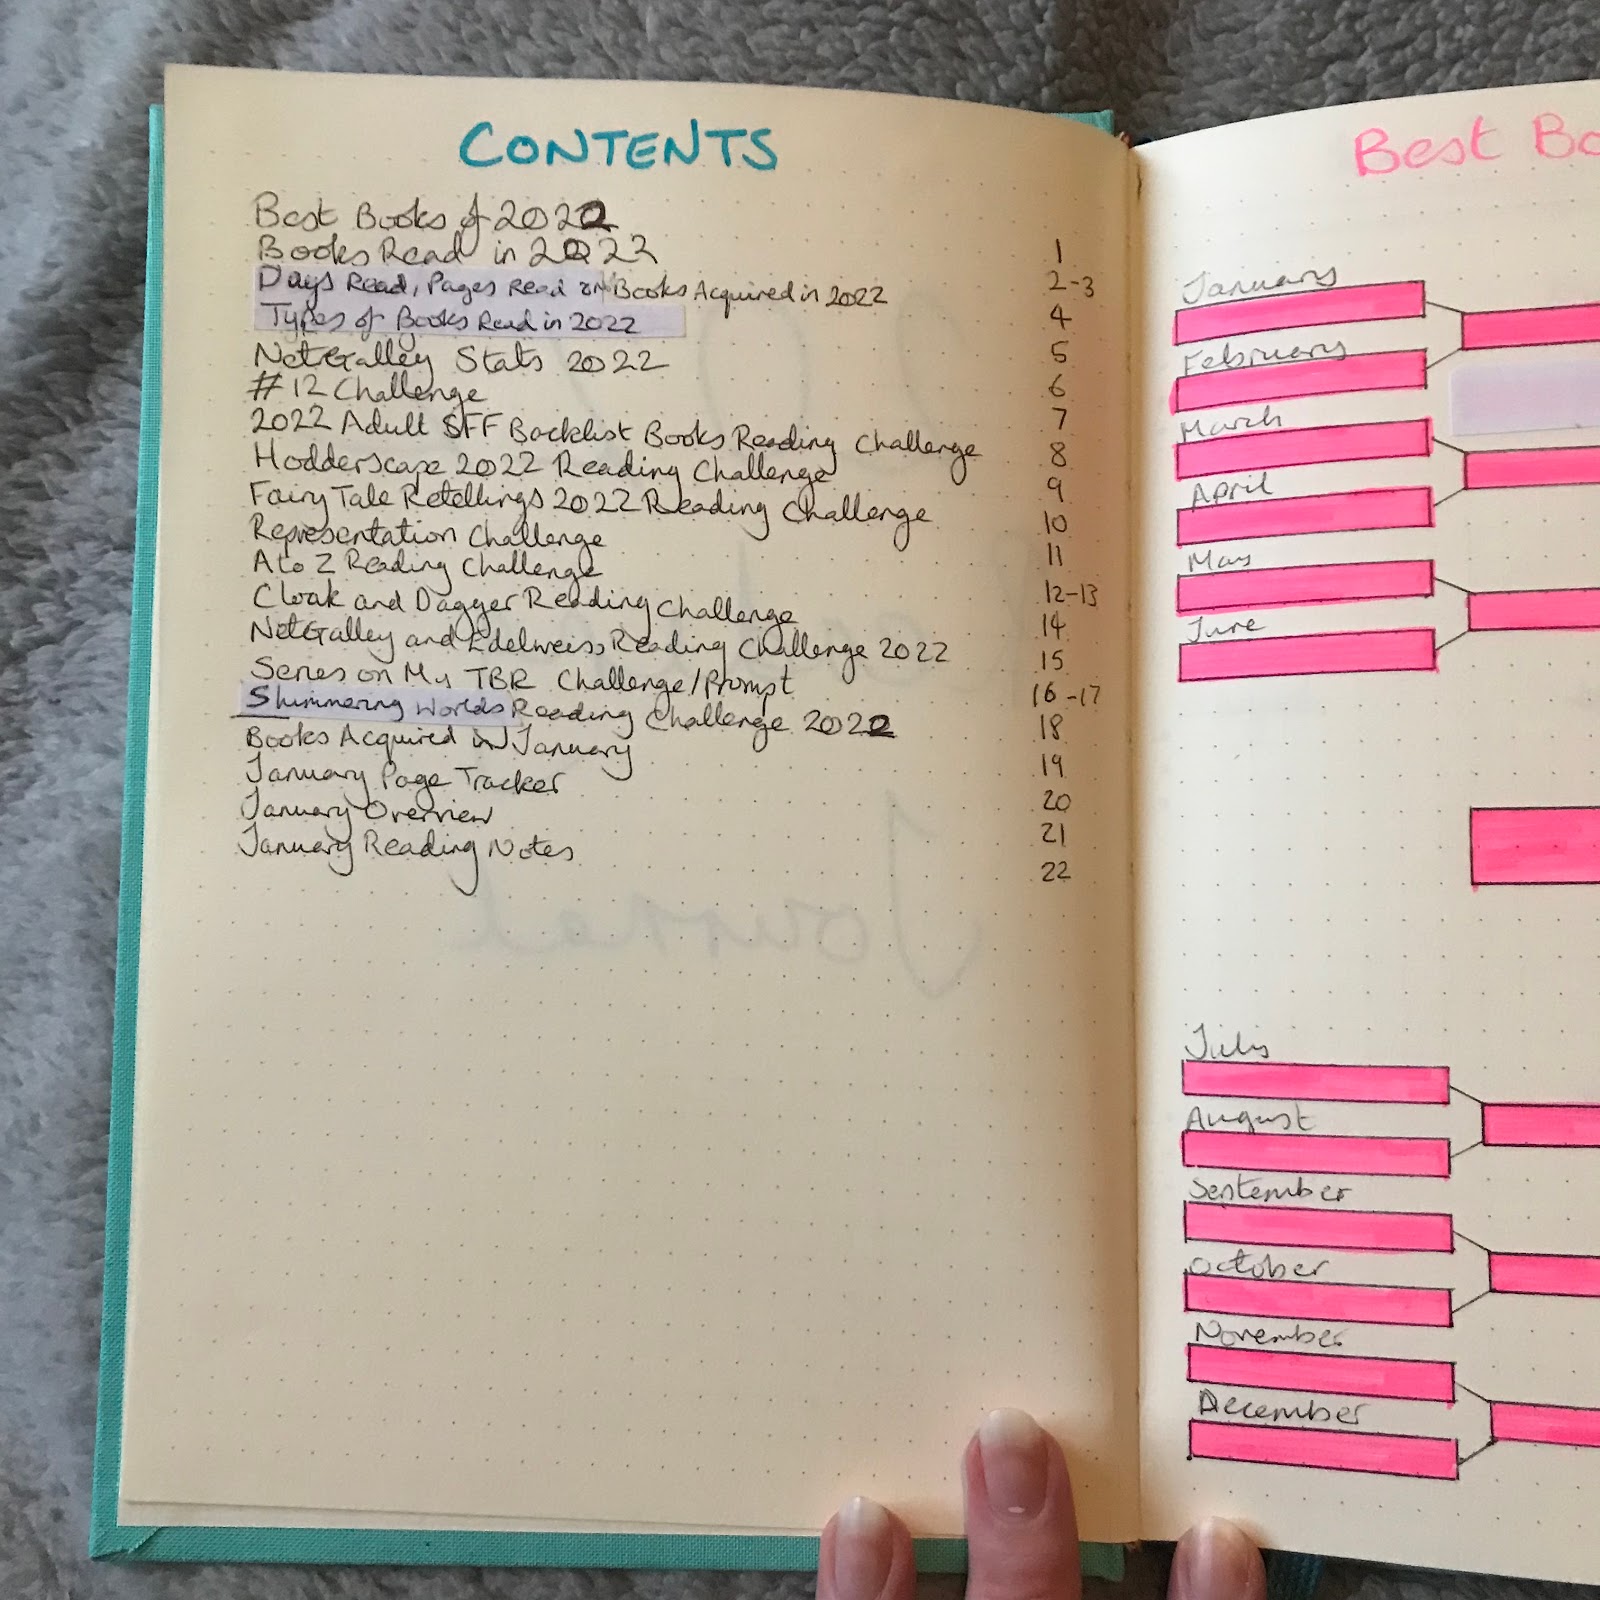 CONTENTS
Best Books of 2022 1
Books Read in 2022 2-3
Days Read, Pages Read & Books Acquired in 2022 4
Types of Books Read in 2022 5
NetGalley Stats 2022 6
#12 Challenge 7
2022 Adult SFF Backlist Books Reading Challenge 8
Hodderscape 2022 Reading Challenge 9
Fairy Tale Retellings 2022 Reading Challenge 10
Representation Challenge 11
A to Z Reading Challenge 12-13
Cloak and Dagger Reading Challenge 14
NetGalley and Edelweiss Reading Challenge 2022 15
Series on My TBR Challenge/Prompt 16-17
Shimmering Worlds Reading Challenge 2022 18
Books Acquired in January 19
January Page Tracker 20
January Overview 21
January Reading Notes 22
Best Bo
January
February
March
April
May
June
July
August
September
October
November
December